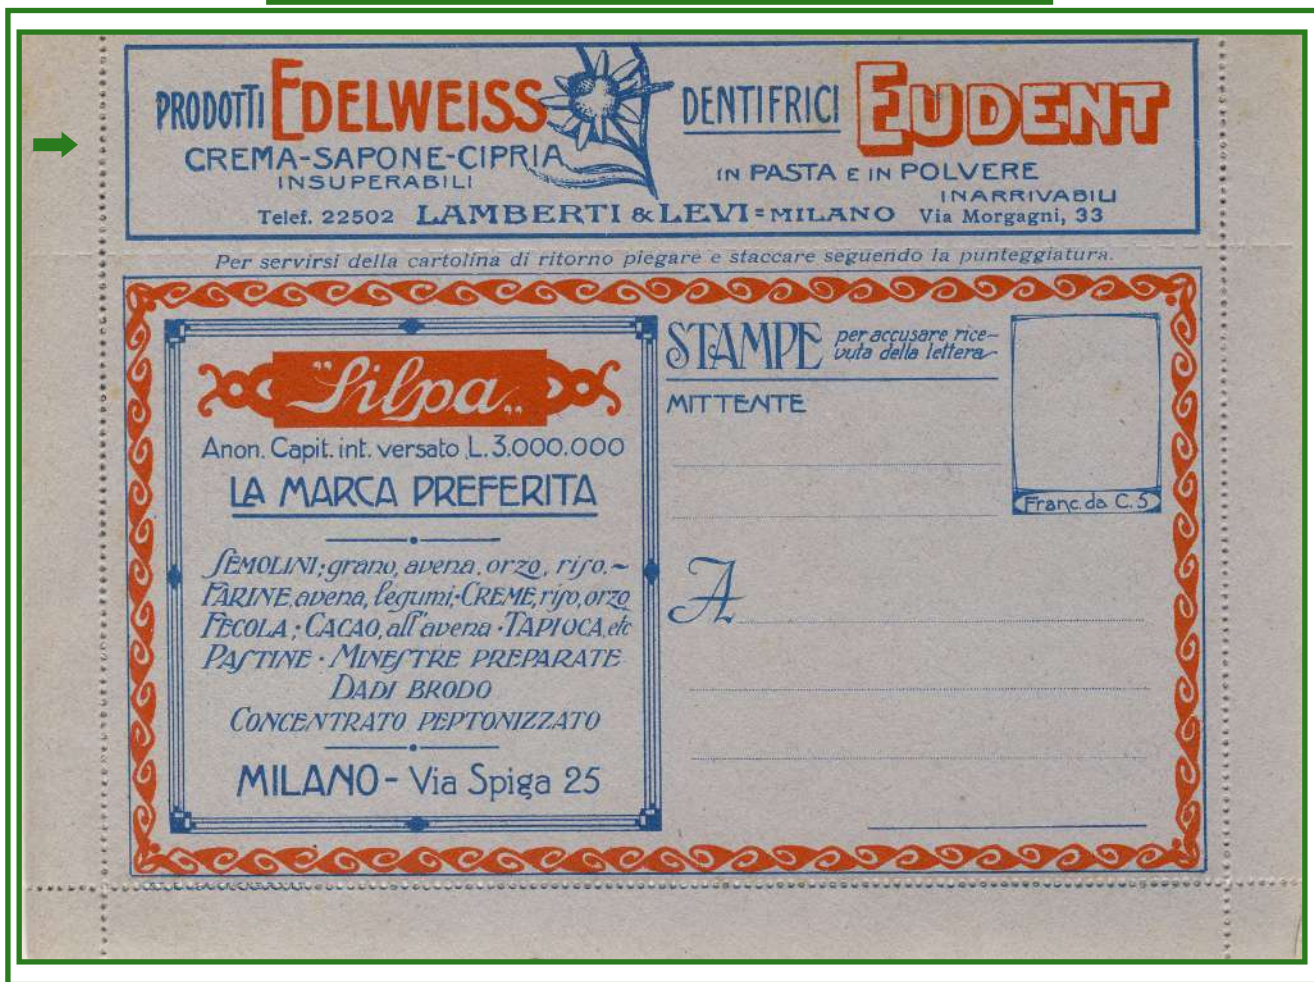 PRODOTTI EDELWEISS
CREMA-SAPONE-CIPRIA
INSUPERABILI
DENTIFRICI EUDENT
IN PASTA E IN POLVERE
INARRIVABILI
Telef. 22502 LAMBERTI & LEVI = MILANO Via Morgagni, 33
Per servirsi della cartolina di ritorno piegare e staccare seguendo la punteggiatura.
"Silpa„
Anon. Capit. int. versato L. 3.000.000
LA MARCA PREFERITA
SEMOLINI; grano, avena, orzo, riso, ~
FARINE, avena, legumi; · CREME, riso, orzo
FECOLA; · CACAO, all'avena · TAPIOCA, etc
PASTINE · MINESTRE PREPARATE
DADI BRODO
CONCENTRATO PEPTONIZZATO
MILANO - Via Spiga 25
STAMPE per accusare rice-
vuta della lettera
MITTENTE
Franc. da C. 5
A